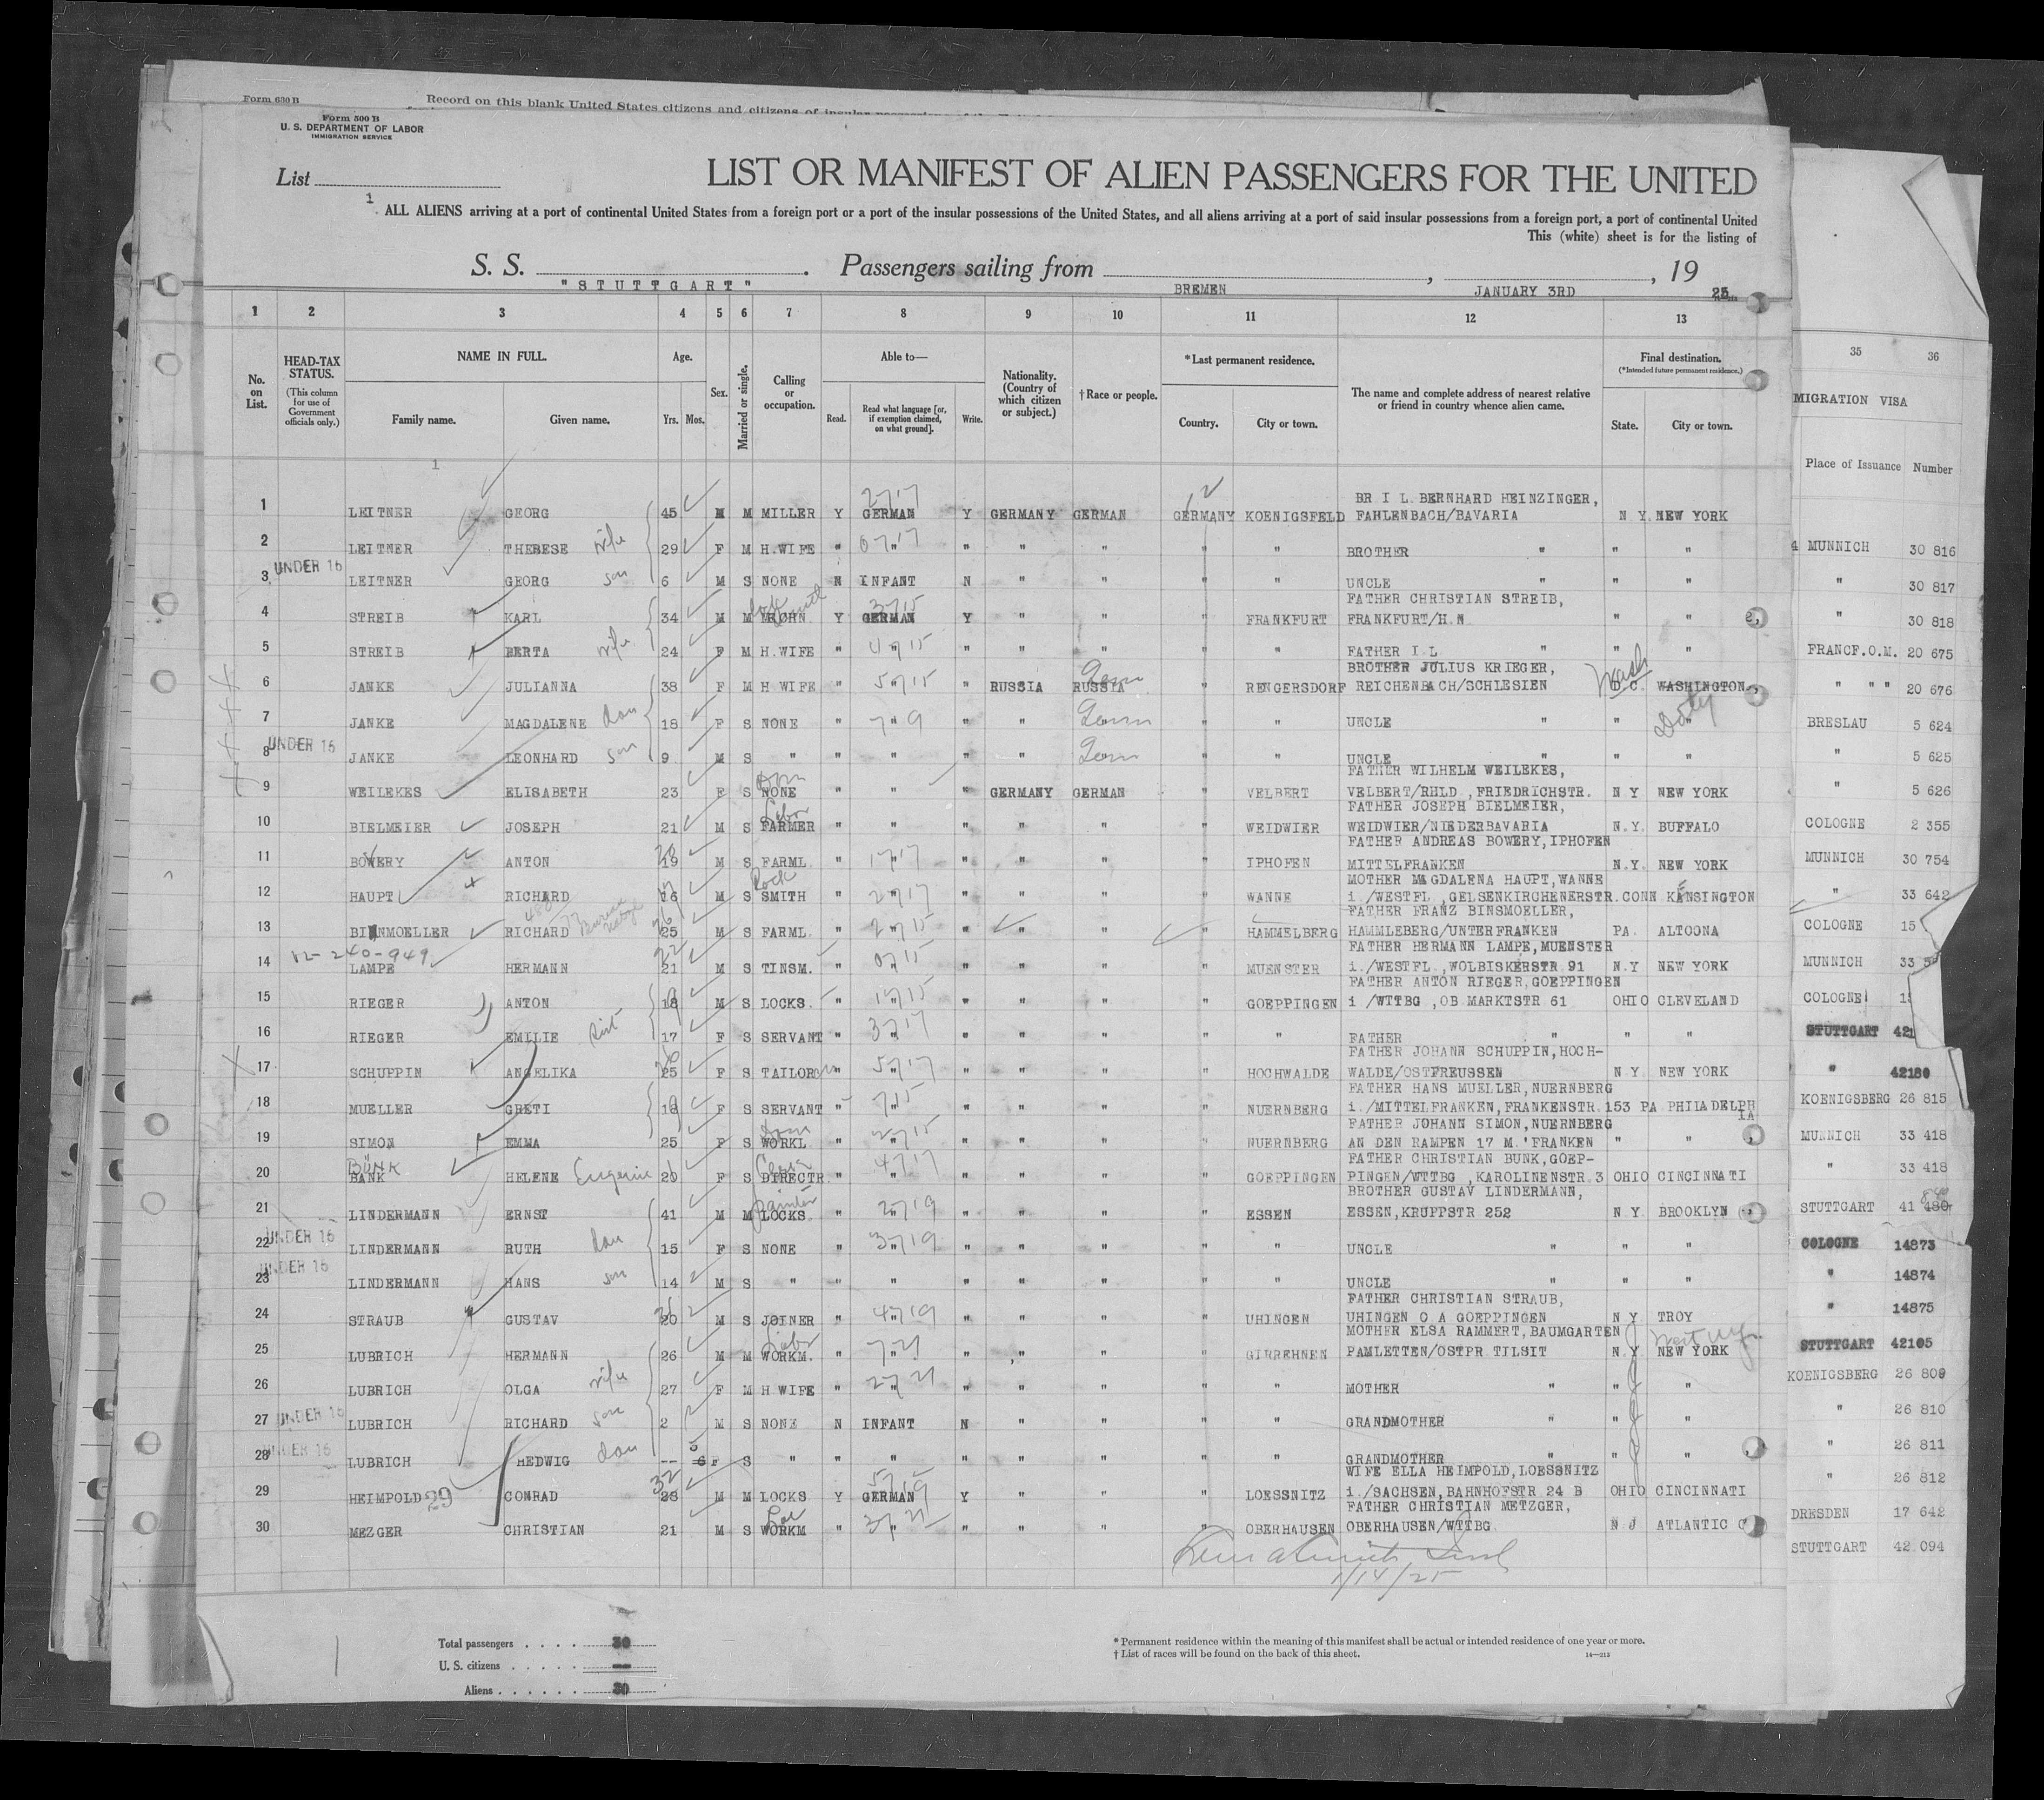 Form 630 B
Record on this blank United States citizens and citizens of insular
Form 500 B
U. S. DEPARTMENT OF LABOR
IMMIGRATION SERVICE
List
1
LIST OR MANIFEST OF ALIEN PASSENGERS FOR THE UNITED
ALL ALIENS arriving at a port of continental United States from a foreign port or a port of the insular possessions of the United States, and all aliens arriving at a port of said insular possessions from a foreign port, a port of continental United
This (white) sheet is for the listing of
S. S. "STUTTGART". Passengers sailing from BREMEN, JANUARY 3RD, 19 25
1 2 3 4 5 6 7 8 9 10 11 12 13 35 36
No. on List. HEAD-TAX STATUS. (This column for use of Government officials only.) NAME IN FULL. Family name. Given name. Age. Yrs. Mos. Sex. Married or single. Calling or occupation. Able to— Read. Read what language [or, if exemption claimed, on what ground]. Write. Nationality. (Country of which citizen or subject.) † Race or people. * Last permanent residence. Country. City or town. The name and complete address of nearest relative or friend in country whence alien came. Final destination. (*Intended future permanent residence.) State. City or town.
MIGRATION VISA
Place of Issuance Number
1
BR I L BERNHARD HEINZINGER,
1 LEITNER GEORG 45 M M MILLER Y GERMAN Y GERMANY GERMAN GERMANY KOENIGSFELD FAHLENBACH/BAVARIA N Y NEW YORK
2 LEITNER THERESE wife 29 F M H.WIFE " " " " " " " BROTHER " " " 4 MUNNICH 30 816
UNDER 16
3 LEITNER GEORG son 6 M S NONE N INFANT N " " " " UNCLE " " " " 30 817
FATHER CHRISTIAN STREIB,
4 STREIB KARL 34 M M MECHN. Y GERMAN Y " " " FRANKFURT FRANKFURT/H.N " " " 30 818
5 STREIB BERTA wife 24 F M H.WIFE " " " " " " " FATHER I L " " " FRANCF.O.M. 20 675
BROTHER JULIUS KRIEGER,
6 JANKE JULIANNA 38 F M H WIFE " " " RUSSIA RUSSIA Germ " RENGERSDORF REICHENBACH/SCHLESIEN D C. Wash WASHINGTON " " " 20 676
7 JANKE MAGDALENE dau 18 F S NONE " " " " Germ " " UNCLE " " " BRESLAU 5 624
UNDER 16
8 JANKE LEONHARD son 9 M S " " " " " Germ " " UNCLE " " " " 5 625
FATHER WILHELM WEILEKES,
9 WEILEKES ELISABETH 23 F S NONE Dom " " " GERMANY GERMAN " VELBERT VELBERT/RHLD ,FRIEDRICHSTR. N Y NEW YORK " 5 626
FATHER JOSEPH BIELMEIER,
10 BIELMEIER JOSEPH 21 M S FARMER Labr " " " " " " WEIDWIER WEIDWIER/NIEDERBAVARIA N.Y. BUFFALO COLOGNE 2 355
FATHER ANDREAS BOWERY,IPHOFEN
11 BOWERY ANTON 19 20 M S FARML. " " " " " " IPHOFEN MITTELFRANKEN N.Y. NEW YORK MUNNICH 30 754
MOTHER MAGDALENA HAUPT,WANNE
12 HAUPT RICHARD 16 17 M S SMITH Lock " " " " " " WANNE i./WESTFL ,GELSENKIRCHENERSTR. CONN KENSINGTON " 33 642
FATHER FRANZ BINSMOELLER,
13 BINNMOELLER RICHARD 25 26 M S FARML " " " " " " HAMMELBERG HAMMLEBERG/UNTERFRANKEN PA. ALTOONA COLOGNE 15
12-240-949
FATHER HERMANN LAMPE,MUENSTER
14 LAMPE HERMANN 21 22 M S TINSM. " " " " " " MUENSTER i./WESTFL ,WOLBISKERSTR 91 N.Y NEW YORK MUNNICH 33
FATHER ANTON RIEGER,GOEPPINGEN
15 RIEGER ANTON 18 M S LOCKS. " " " " " " GOEPPINGEN i /WTTBG ,OB MARKTSTR 61 OHIO CLEVELAND COLOGNE
16 RIEGER EMILIE sist 17 F S SERVANT " " " " " " " FATHER " " " STUTTGART 421
FATHER JOHANN SCHUPPIN,HOCH-
17 SCHUPPIN ANGELIKA 25 F S TAILOR " " " " " " HOCHWALDE WALDE/OSTPREUSSEN N Y NEW YORK " 42180
FATHER HANS MUELLER,NUERNBERG
18 MUELLER GRETI 18 F S SERVANT " " " " " " NUERNBERG i./MITTELFRANKEN,FRANKENSTR.153 PA PHIIADELPHIA KOENIGSBERG 26 815
FATHER JOHANN SIMON,NUERNBERG
19 SIMON EMMA 25 F S WORKL. Dom " " " " " " NUERNBERG AN DEN RAMPEN 17 M.'FRANKEN " " MUNNICH 33 418
FATHER CHRISTIAN BUNK,GOEP-
20 BANK BÜNK HELENE Eugenie 20 F S DIRECTR " " " " " " GOEPPINGEN PINGEN/WTTBG ,KAROLINENSTR.3 OHIO CINCINNATI " 33 418
BROTHER GUSTAV LINDERMANN,
21 LINDERMANN ERNST 41 M M LOCKS painter " " " " " " ESSEN ESSEN,KRUPPSTR 252 N Y BROOKLYN STUTTGART 41 480
UNDER 16
22 LINDERMANN RUTH dau 15 F S NONE " " " " " " " UNCLE " " " COLOGNE 14873
UNDER 16
23 LINDERMANN HANS son 14 M S " " " " " " " " UNCLE " " " " 14874
FATHER CHRISTIAN STRAUB,
24 STRAUB GUSTAV 20 21 M S JOINER " " " " " " UHINGEN UHINGEN O A GOEPPINGEN N Y TROY " 14875
MOTHER ELSA RAMMERT,BAUMGARTEN
25 LUBRICH HERMANN 26 M M WORKM. Labr " " " " " " GIRREHNEN PAMLETTEN/OSTPR TILSIT N.Y. NEW YORK STUTTGART 42105
26 LUBRICH OLGA wife 27 F M H WIFE " " " " " " " MOTHER " " " KOENIGSBERG 26 809
UNDER 16
27 LUBRICH RICHARD son 2 M S NONE N INFANT N " " " " GRANDMOTHER " " " 26 810
UNDER 16
28 LUBRICH HEDWIG dau -- 6 5 F S " " " " " " " " GRANDMOTHER " " " " 26 811
WIFE ELLA HEIMPOLD,LOESSNITZ
29 HEIMPOLD 29 CONRAD 28 32 M M LOCKS Y GERMAN Y " " " LOESSNITZ i./SACHSEN,BAHNHOFSTR 24 B OHIO CINCINNATI " 26 812
FATHER CHRISTIAN METZGER,
30 MEZGER CHRISTIAN 21 M S WORKM " " " " " " OBERHAUSEN OBERHAUSEN/WTTBG N J ATLANTIC C DRESDEN 17 642
STUTTGART 42 094
1/14/25
Total passengers . . . . 30
U. S. citizens . . . . . —
Aliens . . . . . . 30
* Permanent residence within the meaning of this manifest shall be actual or intended residence of one year or more.
† List of races will be found on the back of this sheet.
14—213